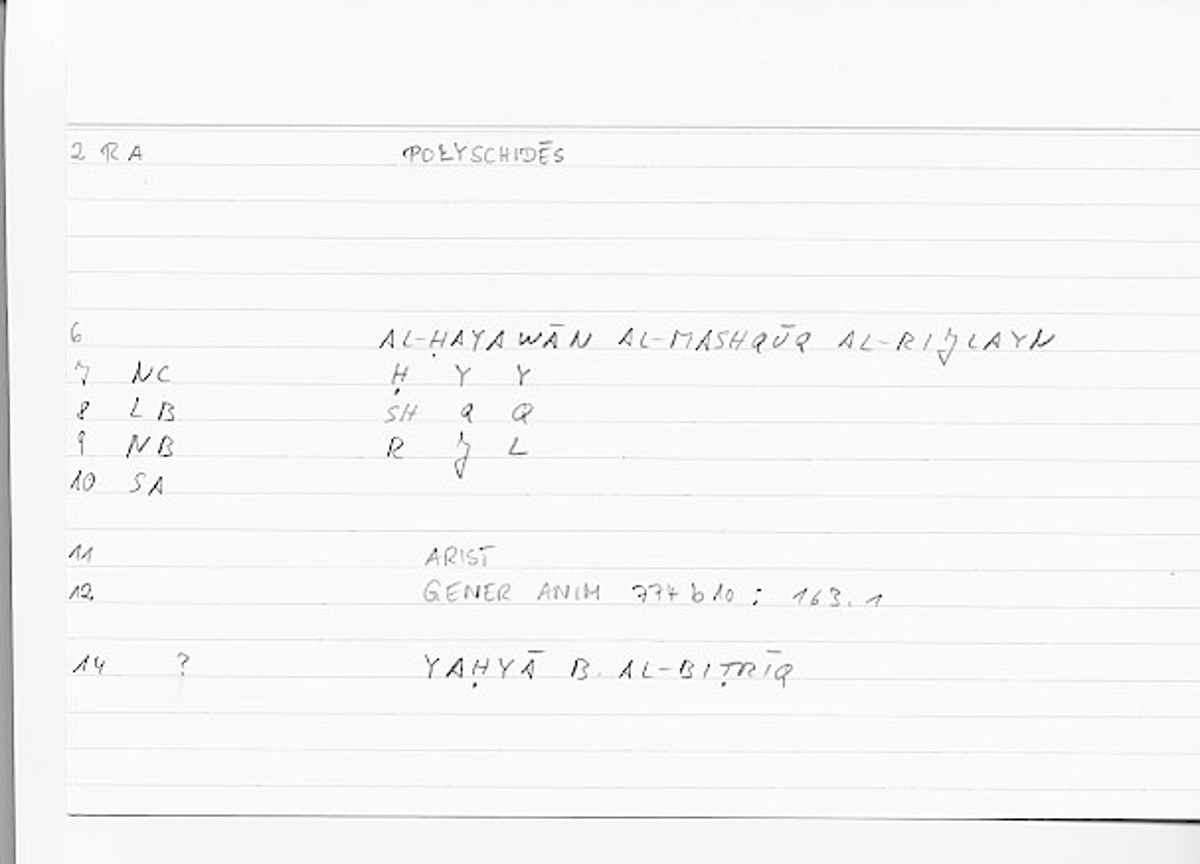 2 RA POLYSCHIDĒS
6 AL-ḤAYAWĀN AL-MASHQŪQ AL-RIJLAYN
7 NC Ḥ Y Y
8 LB SH Q Q
9 NB R J L
10 SA
11 ARIST
12 GENER ANIM 774b10 : 163.1
14 ? YAḤYĀ B. AL-BIṬRĪQ